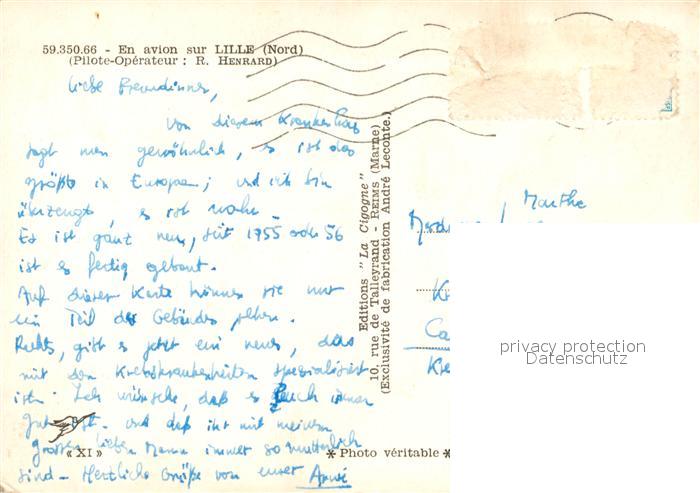 59.350.66 - En avion sur LILLE (Nord)
(Pilote-Opérateur : R. HENRARD)
Liebe Freundinnen,
Von diesem Krankenhaus
sagt man gewöhnlich, es ist das
größte in Europa; und ich bin
überzeugt, es ist wahr.
Es ist ganz neu, seit 1955 oder 56
ist es fertig gebaut.
Auf dieser Karte können sie nur
ein Teil des Gebäudes sehen.
Rechts, gibt es jetzt ein neues, das
mit den Krebskrankenheiten spezialisiert
ist. Ich wünsche, daß es Euch immer
gut ist. und daß ihr mit meinem
großen lieben Mama immer so mutterlich
sind - Herzliche Grüße von eurer Anni
« XI »
* Photo véritable *
Editions "La Cigogne"
10, rue de Talleyrand - REIMS (Marne)
(Exclusivité de fabrication André Leconte.)
Marthe
privacy protection
Datenschutz